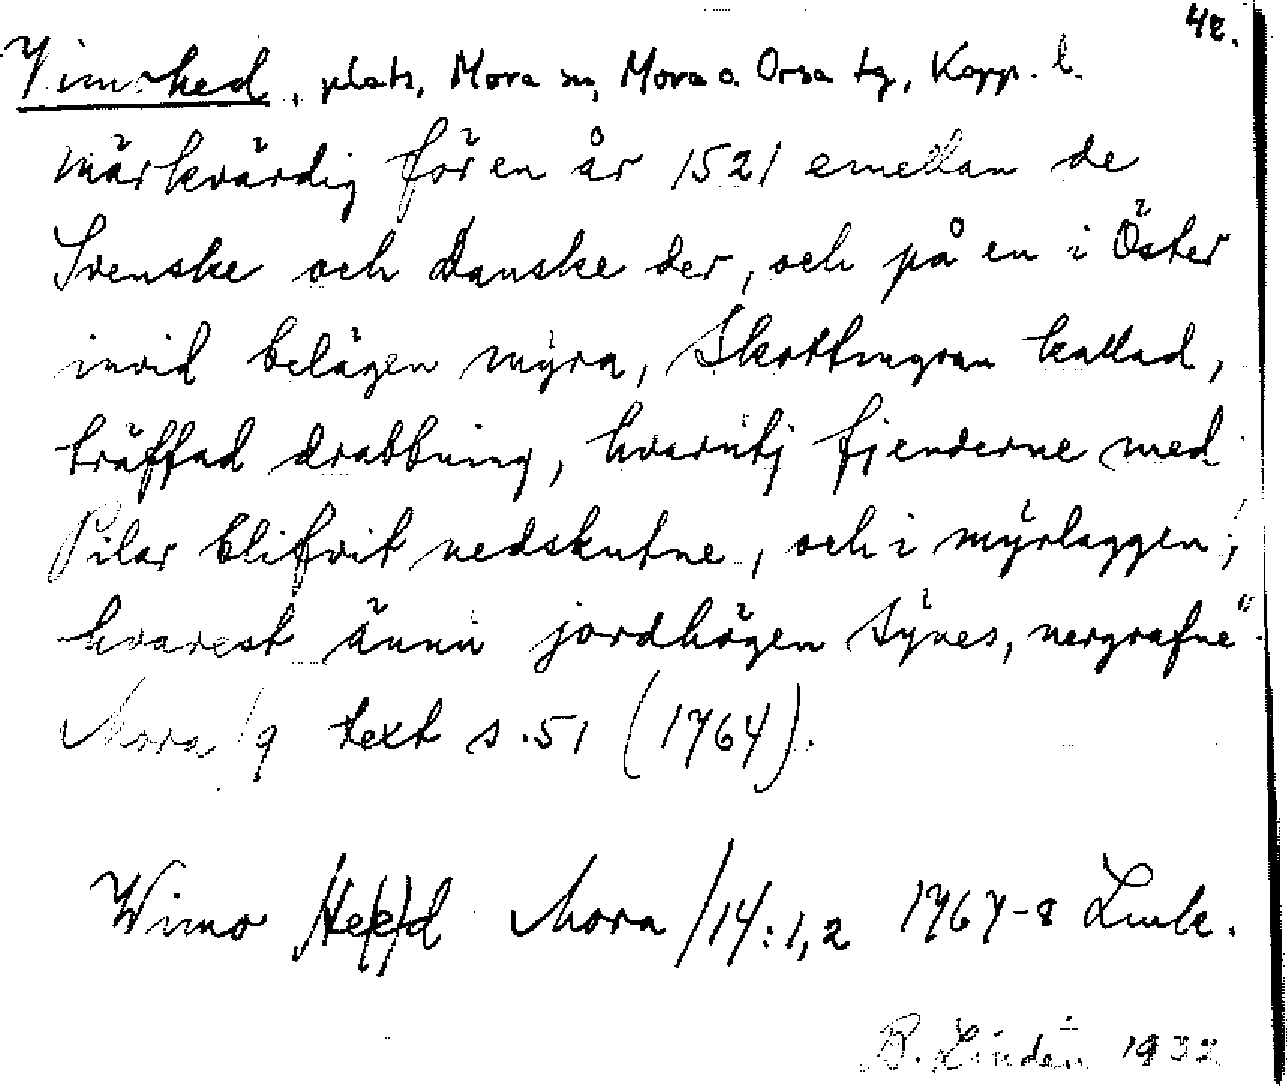 42.
Vimohed, plats, Mora sn, Mora o. Orsa tg, Kopp. l.
märkvärdig för en år 1521 emellan de
Svenske och Danske der, och på en i Öster
invid belägen myra, Skottmyran kallad,
träffad drabbning, hvaruti fjenderne med
Pilar blifvit nedskutne, och i mÿrlaggen,
hvarest ännu jordhögen sÿnes, nergrafne".
Mora /9 text s. 51 (1764).
Wimo He(e)d Mora /14:1,2 1767-8 Lmk.
B. Lindén 1932